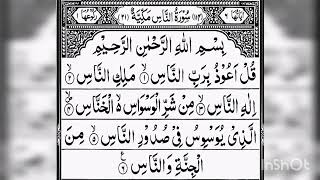 اٰيَاتُهَا ٦ (١١٤) سُوْرَةُ النَّاسِ مَكِّيَّةٌ (٢١) رُكُوْعُهَا ١
بِسْمِ اللّٰهِ الرَّحْمٰنِ الرَّحِيْمِ
قُلْ اَعُوْذُ بِرَبِّ النَّاسِ ۙ﴿١﴾ مَلِكِ النَّاسِ ۙ﴿٢﴾
اِلٰهِ النَّاسِ ۙ﴿٣﴾ مِنْ شَرِّ الْوَسْوَاسِ ۙ۬ الْخَنَّاسِ ۪ۙ﴿٤﴾
الَّذِيْ يُوَسْوِسُ فِيْ صُدُوْرِ النَّاسِ ۙ﴿٥﴾ مِنَ
الْجِنَّةِ وَالنَّاسِ ﴿٦﴾
InShOt